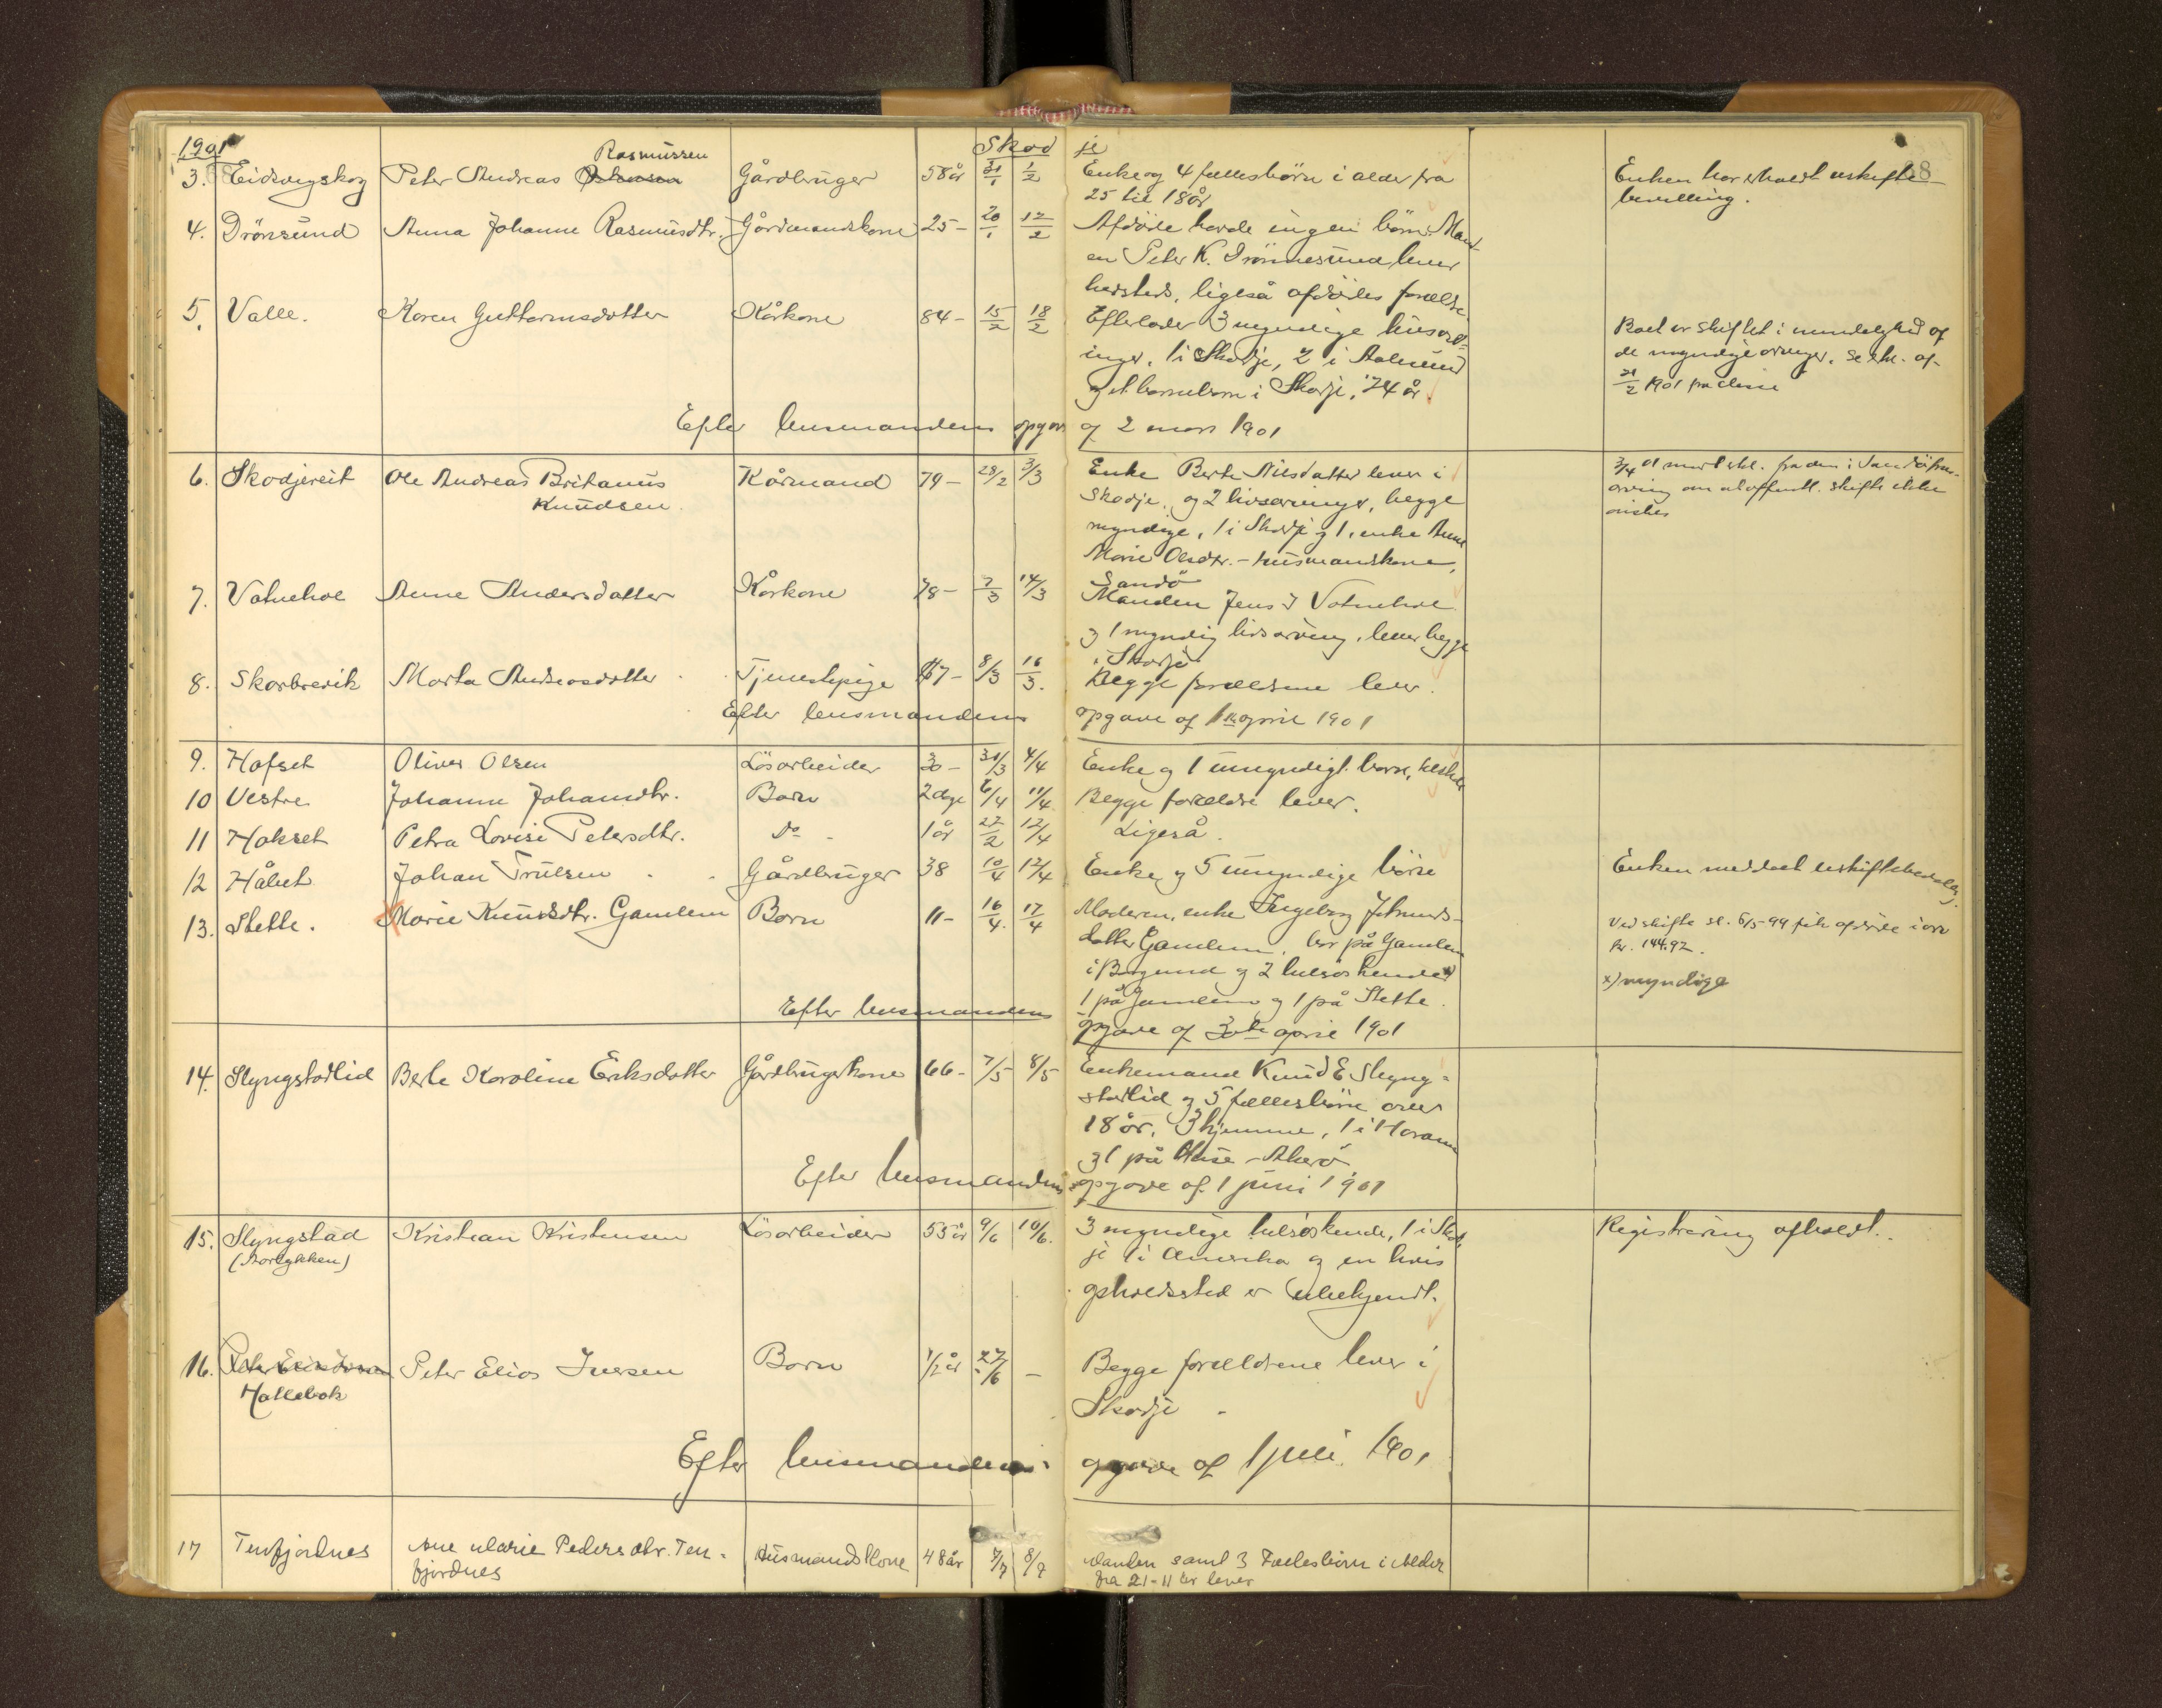 1901 Skodje
3. Eidsvigskog Peter Andreas Rasmussen Gårdbruger 58 år 31/1 1/2 Enke og 4 fællesbørn i alder fra Enken har erholdt uskifte- 38
25 til 18 år bevilling.
4. Drönsund Anna Johanne Rasmusdtr. Gårdmandskone 25 - 20/1 12/2 Afdöde havde ingen börn. Mand-
en Peter K. Drönnesund lever
hersteds, ligeså afdödes forældre
5. Valle. Karen Guttormsdatter Kårkone 84 - 15/2 18/2 Efterlader 3 myndige livsarv-
inger, 1 i Skodje, 2 i Aalesund Boet er skiftet i mindelighed af
og et barnebarn i Skodje, 24 år. de myndige arvinger. Se skr. af
21/2 1901 fra disse
Efter lensmandens opgave af 2 mars 1901
6. Skodjereit Ole Andreas Britanus Kårmand 79 - 28/2 3/3 Enke Berte Nilsdatter lever i 3/4 01 skr. fra den i Sandö
Knudsen. Skodje, og 2 livsarvinger, begge arving om at offentl. skifte ikke
myndige, 1 i Skodje og 1, enke Anne önskes
Marie Olsdtr. - husmandskone,
Sandö
7. Vatnehol Anne Andersdatter Kårkone 78 - 7/3 14/3 Manden Jens J Vatnehol
og 1 myndig livsarving, lever begge
i Skodje
8. Skorbrevik Marta Andreasdatter Tjenestepige 17 - 8/3 16/3. Begge forældrene lever.
Efter lensmandens opgave af 1ste april 1901
9. Hofset Oliver Olsen Lösarbeider 30 - 31/3 4/4 Enke og 1 umyndigt barn,
10 Vestre Johanne Johansdtr. Barn 2 dage 6/4 11/4 Begge forældre lever.
11 Hakset Petra Lovise Petersdtr. Do - 1 år 27/2 12/4 Ligeså.
12 Håhet Johan Trulsen Gårdbruger 38 10/4 12/4 Enke og 5 umyndige börn Enken meddelt uskiftebevilling.
13. Stette. Marie Knudsdtr. Gamlem Barn 11 - 16/4 17/4 Moderen, enke Ingeborg Johnnds- Ved skifte sl. 6/5-99 fik afdöde i arv
datter Gamlem, bor på Gamlem kr. 144.92.
i Borgund og 2 helsöskende x) x) myndige
1 på Gamlem og 1 på Stette.
Efter lensmandens opgave af 30te april 1901
14. Slyngstadlid Berte Karoline Eriksdatter Gårdbrugerkone 66 - 7/5 8/5 Enkemand Knud E Slyng-
stadlid og 5 fællesbörn over
18 år, 3 hjemme, 1 i Haram
og 1 på Huse - Akerö
Efter lensmandens opgave af 1 juni 1901
15. Slyngstad Kristian Kristensen Lösarbeider 55 år 9/6 10/6. 3 myndige helsöskende, 1 i Skod- Registrering afholdt.
je 1 i Amerika og en hvis
opholdssted er ubekjendt.
16. Peter Elias Iversen Barn 1/2 år 27/6 - Begge forældrene lever i
Hallebak Skodje
Efter lensmandens opgave af 1 juli 1901
17 Tenfjordnes Ane Marie Pedersdtr. Ten- Husmandskone 48 år 7/7 8/7 Manden samt 3 Fællesbörn i Alder
fjordnes fra 21-11 år lever